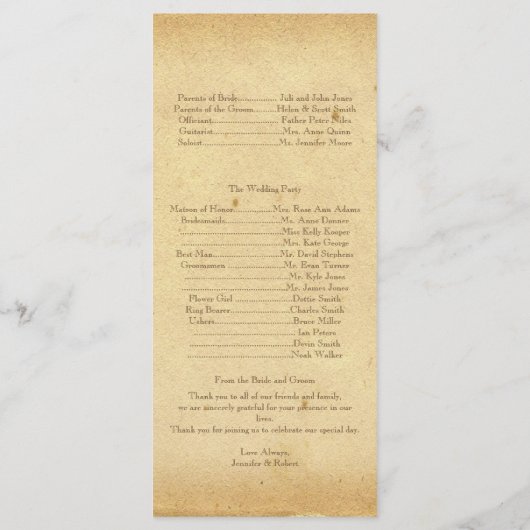 Parents of Bride................. Juli and John Jones
Parents of the Groom.........Helen & Scott Smith
Officiant............................ Father Peter Niles
Guitarist..............................Mrs. Anne Quinn
Soloist.................................Ms. Jennifer Moore
The Wedding Party
Matson of Honor.................Mrs. Rose Ann Adams
Bridesmaids........................Ms. Anne Donner
............................................Miss Kelly Kooper
............................................Mrs. Kate George
Best Man.............................Mr. David Stephens
Groomsmen ........................Ms. Evan Turner
............................................Mr. Kyle Jones
............................................Mr. James Jones
Flower Girl .........................Dottie Smith
Ring Bearer.........................Charles Smith
Ushers.................................Bruce Miller
............................................ Ian Peters
............................................Devin Smith
............................................Noah Walker
From the Bride and Groom
Thank you to all of our friends and family,
we are sincerely grateful for your presence in our
lives.
Thank you for joining us to celebrate our special day.
Love Always,
Jennifer & Robert